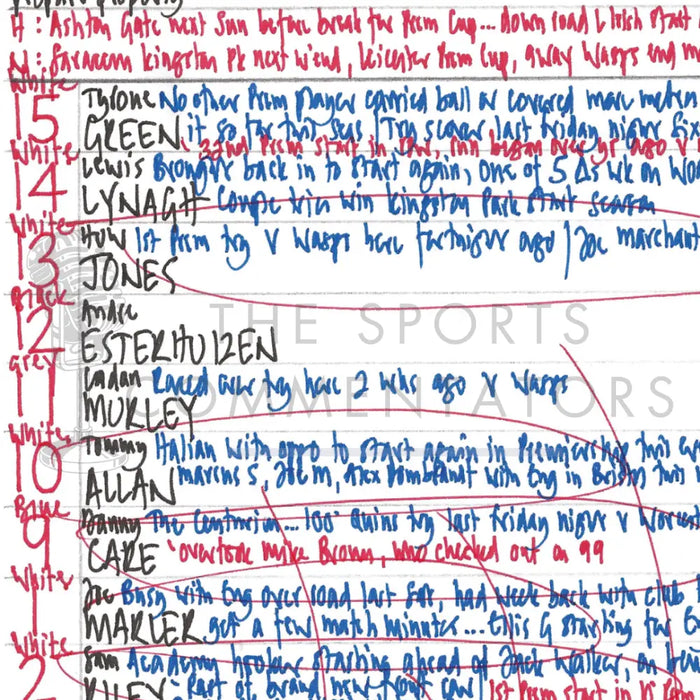 prepare property
H: Ashton Gate next Sun before break for Prem Cup... down road L Irish start
N: Saracens Kingston Pk next w'end, Leicester Prem Cup, away Wasps end
White
15 Tyrone GREEN No other Prem player carried ball or covered more metres
it so far this seas | Try scorer last Friday night
22nd Prem start in row, run began over yr ago v
White
14 Lewis LYNAGH Brought back in to start again, one of 5 Δs wk on
Coupe tries win Kingston Park start season
White
13 Huw JONES 1st Prem try v Wasps here fortnight ago | Joe Marchant
Black
12 Andre ESTERHUIZEN
THE SPORTS COMMENTATORS
Grey
11 Cadan MURLEY Raced over try here 2 wks ago v Wasps
White
10 Tommy ALLAN Italian with oppo to start again in Premiership this
Marcus S, Joe M, Alex Dombrandt with Eng in this
Blue
9 Danny CARE The Centurion... 100th Quins try last Friday night v
overtook Mike Brown, who checked out on 99
White
1 Joe MARLER Busy with Eng over road last Sat, had week back with club
get a few match minutes... this G starting for
White
2 Sam RILEY Academy hooker starting ahead of Jack Walker, on
Part of brand new front row | 1st Prem start in